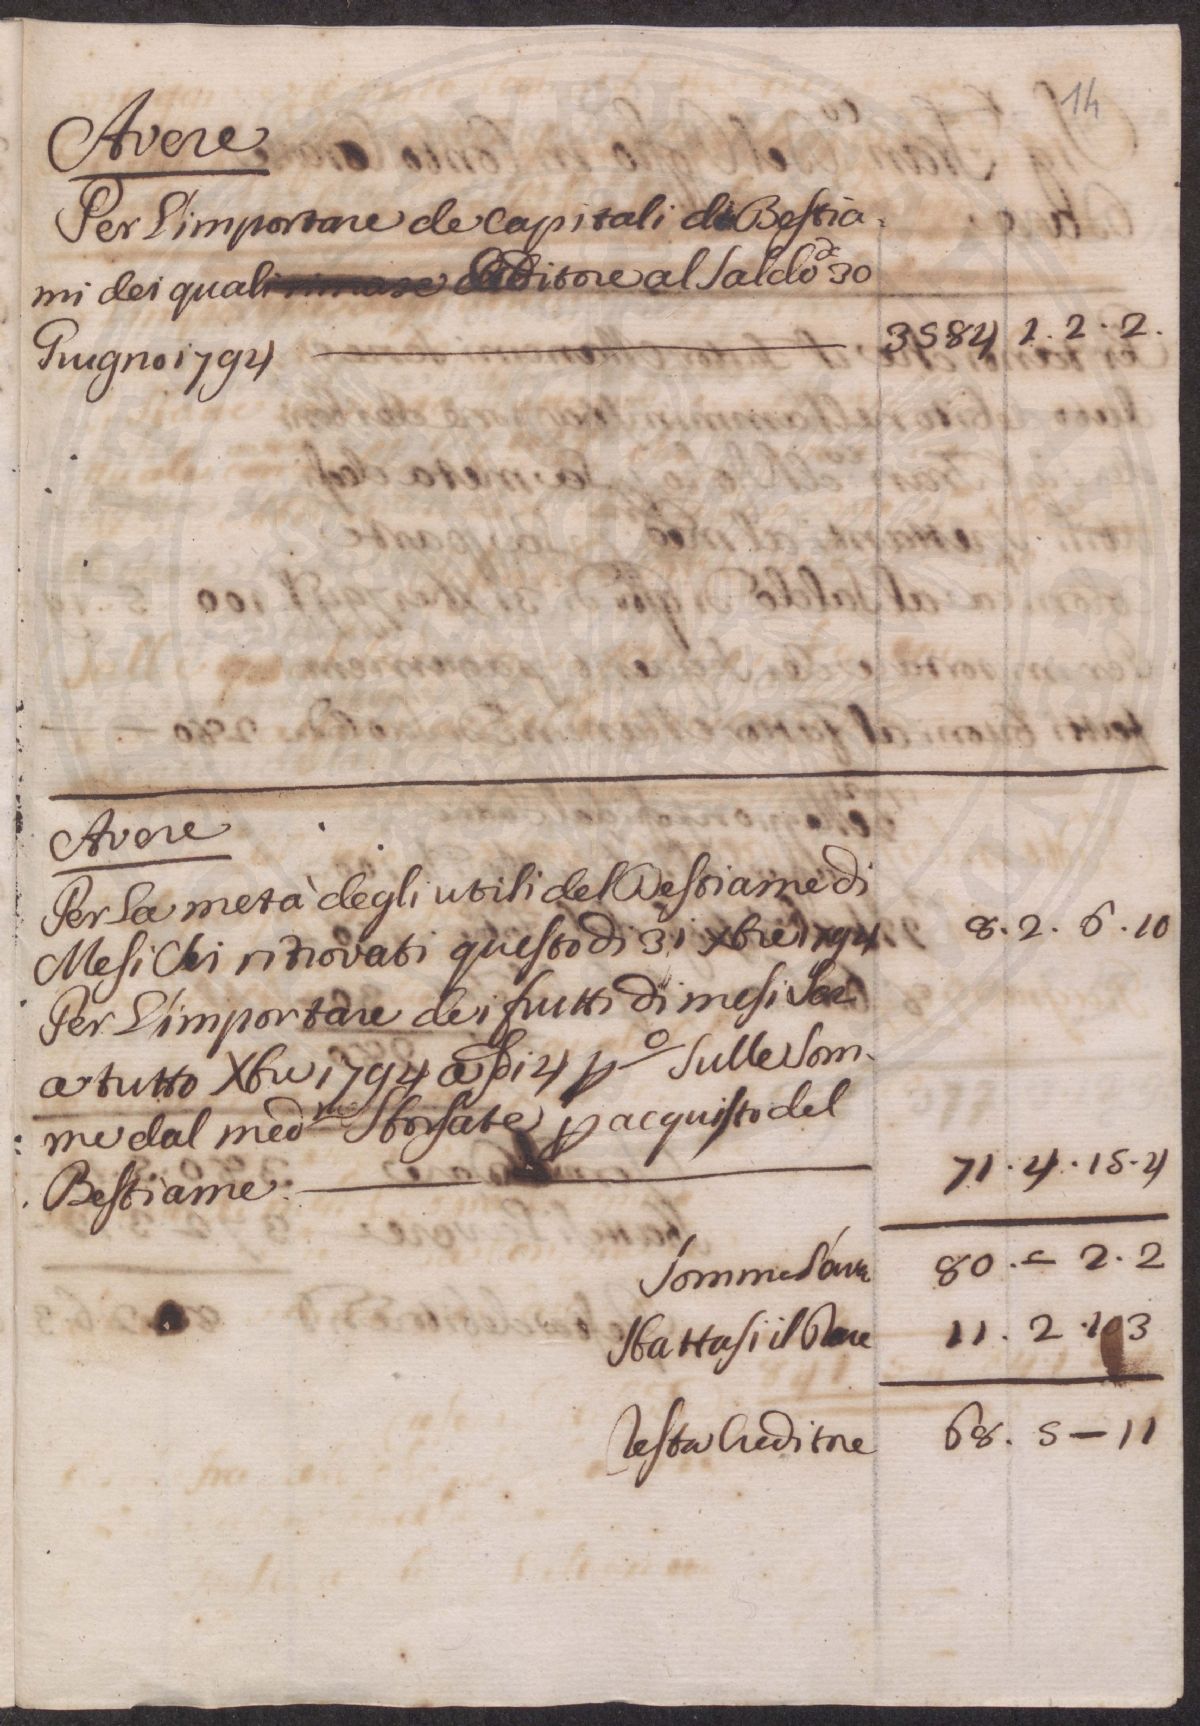 14
Avere
Per L'importare de capitali di Bestia-
mi dei quali Creditore al Saldo de 30
Giugno 1794 3584 2. 2. 2.
Avere
Per La metà degli utili del Bestiame di
Mesi Sei ritrovati questo di 31 Xbre 1794 8. 2. 6. 10
Per L'importare dei frutti di mesi Sei
a tutto Xbre 1794 a Di 4 p o Sulle Som-
me dal med mo Sborsate p acquisto del
Bestiame 71. 4. 15. 4
Somma L'avere 80. = 2. 2
Sbattasi il Dare 11. 2. 1 3
Resta Creditore 68. 5 — 11